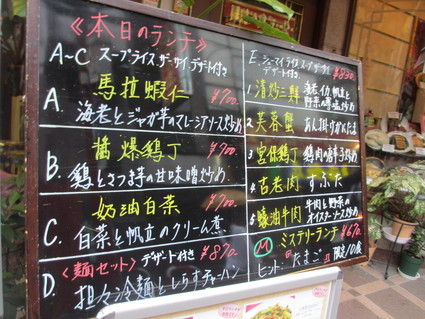 《本日のランチ》
A~C スープ ライス ザーサイ デザート付き
A. 馬拉蝦仁 ¥700.
海老とジャガ芋のマレーシアソース炒め
B. 醤爆鶏丁 ¥700
鶏とさつま芋の甘味噌炒め.
C. 奶油白菜 ¥700.
白菜と帆立のクリーム煮
D. 〈麺セット〉 デザート付き ¥870
担々冷麺としらすチャーハン
E. シューマイ ライス スープ ザーサイ デザート付き ¥830.
1 清炒三鮮 海老、イカ、帆立と野菜の塩炒め
2 芙蓉蟹 あん掛けかにたま
3 宮保鶏丁 鶏肉の唐辛子炒め
4 古老肉 すぶた
5 蠔油牛肉 牛肉と野菜のオイスターソース炒め
M ミステリーランチ ¥670.
ヒント: たまご 限定10食